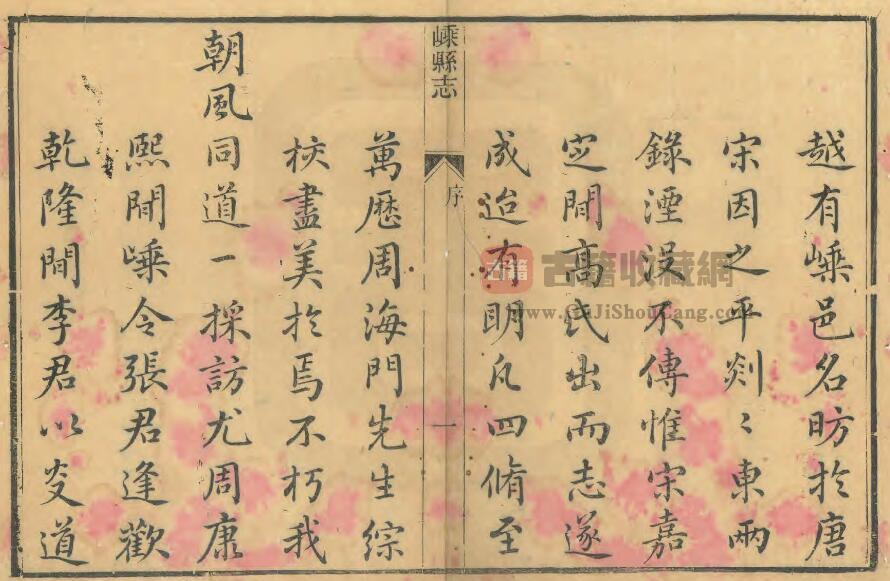 越有嵊邑名昉於唐
宋因之平剡〻東兩
錄湮没不傳惟宋嘉
定間高氏出而志遂
成迨有明凡四脩至
嵊縣志 序 一
萬歷周海門先生綜
核盡美於焉不朽我
朝風同道一採訪尤周康
熙間嵊令張君逢歡
乾隆間李君以炎道
古籍 古籍收藏網
www.GuJiShouCang.com